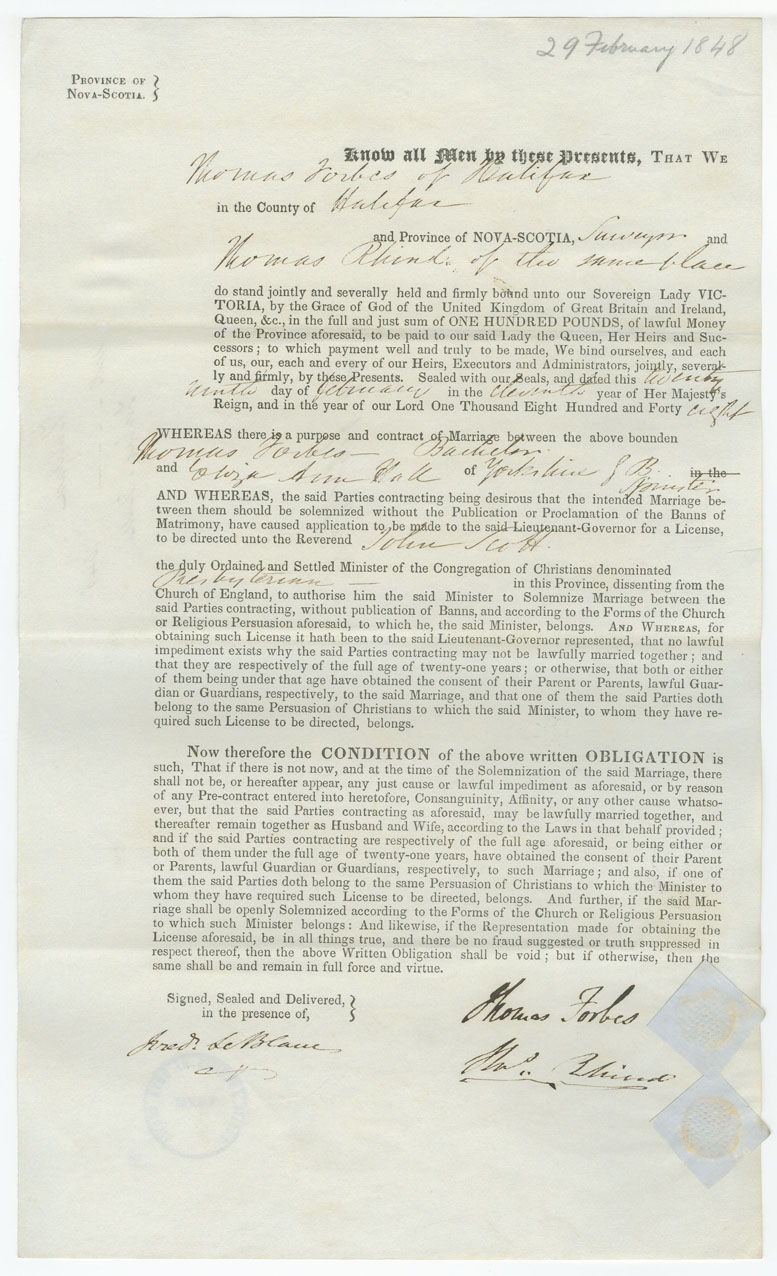 29 February 1848
PROVINCE OF }
NOVA-SCOTIA. }
Know all Men by these Presents, THAT WE
Thomas Forbes of Halifax
in the County of Halifax
and Province of NOVA-SCOTIA, Surveyor and
Thomas Rhind of the same place
do stand jointly and severally held and firmly bound unto our Sovereign Lady VIC-
TORIA, by the Grace of God of the United Kingdom of Great Britain and Ireland,
Queen, &c., in the full and just sum of ONE HUNDRED POUNDS, of lawful Money
of the Province aforesaid, to be paid to our said Lady the Queen, Her Heirs and Suc-
cessors; to which payment well and truly to be made, We bind ourselves, and each
of us, our, each and every of our Heirs, Executors and Administrators, jointly, several-
ly and firmly, by these Presents. Sealed with our Seals, and dated this twenty
ninth day of February in the eleventh year of Her Majesty's
Reign, and in the year of our Lord One Thousand Eight Hundred and Forty eight
WHEREAS there is a purpose and contract of Marriage between the above bounden
Thomas Forbes — Bachelor
and Eliza Ann Hall of Yorkshire G B. in the
Spinster
AND WHEREAS, the said Parties contracting being desirous that the intended Marriage be-
tween them should be solemnized without the Publication or Proclamation of the Banns of
Matrimony, have caused application to be made to the said Lieutenant-Governor for a License,
to be directed unto the Reverend John Scott.
the duly Ordained and Settled Minister of the Congregation of Christians denominated
Presbyterian — in this Province, dissenting from the
Church of England, to authorise him the said Minister to Solemnize Marriage between the
said Parties contracting, without publication of Banns, and according to the Forms of the Church
or Religious Persuasion aforesaid, to which he, the said Minister, belongs. AND WHEREAS, for
obtaining such License it hath been to the said Lieutenant-Governor represented, that no lawful
impediment exists why the said Parties contracting may not be lawfully married together; and
that they are respectively of the full age of twenty-one years; or otherwise, that both or either
of them being under that age have obtained the consent of their Parent or Parents, lawful Guar-
dian or Guardians, respectively, to the said Marriage, and that one of them the said Parties doth
belong to the same Persuasion of Christians to which the said Minister, to whom they have re-
quired such License to be directed, belongs.
Now therefore the CONDITION of the above written OBLIGATION is
such, That if there is not now, and at the time of the Solemnization of the said Marriage, there
shall not be, or hereafter appear, any just cause or lawful impediment as aforesaid, or by reason
of any Pre-contract entered into heretofore, Consanguinity, Affinity, or any other cause whatso-
ever, but that the said Parties contracting as aforesaid, may be lawfully married together, and
thereafter remain together as Husband and Wife, according to the Laws in that behalf provided;
and if the said Parties contracting are respectively of the full age aforesaid, or being either or
both of them under the full age of twenty-one years, have obtained the consent of their Parent
or Parents, lawful Guardian or Guardians, respectively, to such Marriage; and also, if one of
them the said Parties doth belong to the same Persuasion of Christians to which the Minister to
whom they have required such License to be directed, belongs. And further, if the said Mar-
riage shall be openly Solemnized according to the Forms of the Church or Religious Persuasion
to which such Minister belongs: And likewise, if the Representation made for obtaining the
License aforesaid, be in all things true, and there be no fraud suggested or truth suppressed in
respect thereof, then the above Written Obligation shall be void; but if otherwise, then the
same shall be and remain in full force and virtue.
Signed, Sealed and Delivered, }
in the presence of, }
Thomas Forbes
Fredk. LeBlanc
Thos. Rhind